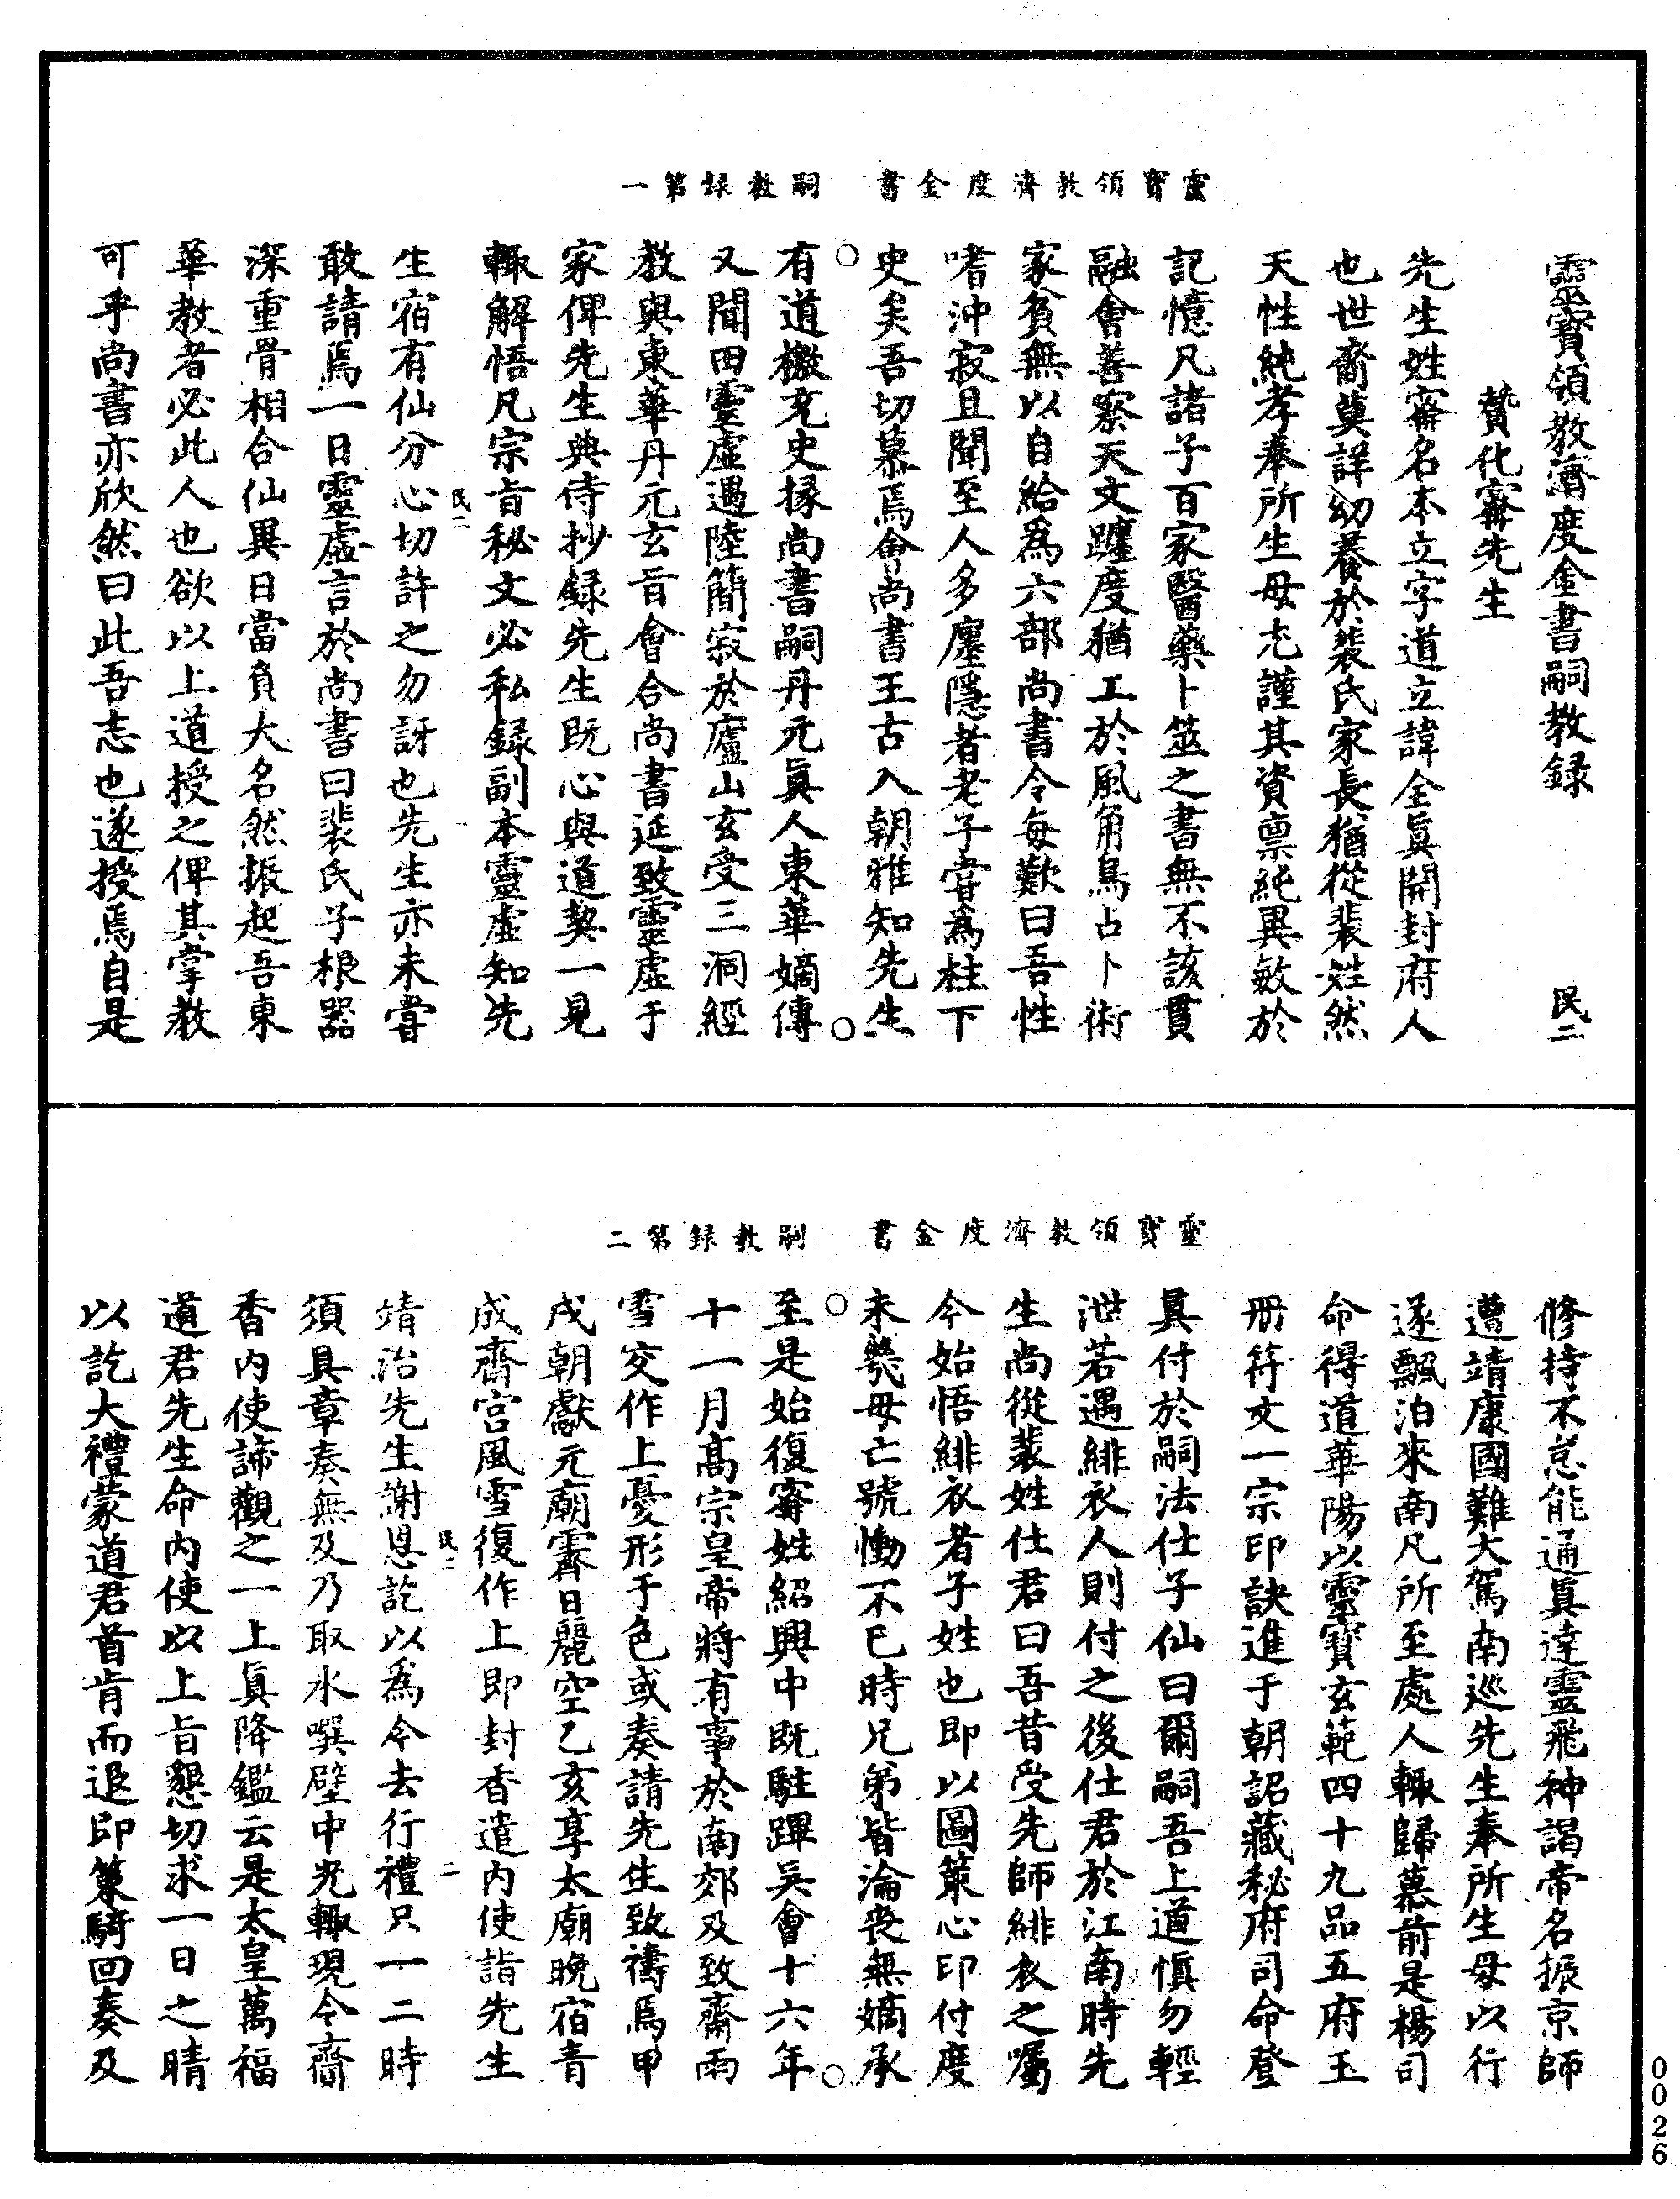 靈寶領教濟度金書　嗣教錄第一
靈寶領教濟度金書嗣教錄　民二
贊化甯先生
先生姓甯名本立字道立諱全眞開封府人
也世裔莫詳幼養於裴氏家長猶從裴姓然
天性純孝奉所生母尤謹其資禀純異敏於
記憶凡諸子百家醫藥卜筮之書無不該貫
融會善察天文躔度猶工於風角鳥占卜術
家貧無以自給爲六部尚書令每歎曰吾性
嗜沖寂且聞至人多廛隱者老子嘗爲柱下
史矣吾切慕焉會尚書王古入朝雅知先生
有道檄充史掾尚書嗣丹元眞人東華嫡傳
又聞田靈虛遇陸簡寂於廬山玄受三洞經
教與東華丹元玄旨會合尚書延致靈虛于
家俾先生典侍抄錄先生既心與道契一見
輒解悟凡宗旨秘文必私錄副本靈虛知先
生宿有仙分心切許之勿訝也先生亦未嘗
民二
敢請焉一日靈虛言於尚書曰裴氏子根器
深重骨相合仙異日當負大名然振起吾東
華教者必此人也欲以上道授之俾其掌教
可乎尚書亦欣然曰此吾志也遂授焉自是
靈寶領教濟度金書　嗣教錄第二
修持不怠能通真達靈飛神謁帝名振京師
遭靖康國難大駕南巡先生奉所生母以行
遂飄泊來南凡所至處人輒歸慕前是楊司
命得道華陽以靈寶玄範四十九品五府玉
冊符文一宗印訣進于朝詔藏秘府司命登
眞付於嗣法仕子仙曰爾嗣吾上道愼勿輕
泄若遇緋衣人則付之後仕君於江南時先
生尚從裴姓仕君曰吾昔受先師緋衣之囑
今始悟緋衣者子姓也即以圖策心印付度
未幾母亡號慟不已時兄弟皆淪喪無嫡承
至是始復甯姓紹興中既駐蹕吳會十六年
十一月高宗皇帝將有事於南郊及致齋雨
雪交作上憂形于色或奏請先生致禱焉甲
戌朝獻元廟霽日麗空乙亥享太廟晩宿青
成齋宮風雪復作上即封香遣内使詣先生
靖治先生謝恩訖以為今去行禮只一二時
民二　二
須具章奏無及乃取水噀壁中光輒現令齋
香内使諦觀之一上眞降鑑云是太皇萬福
道君先生命内使以上旨懇切求一日之晴
以訖大禮蒙道君首肯而退印策騎回奏及
0026